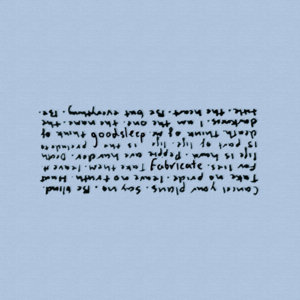 Cancel your plans. Say no. Be blind.
Take no pride. Leave no truth. Hand
for lies. Fabricate. Take them. Leave a
life is hard. People are harder. Death
is part of life. life is the
death. Think of goodsleep Think of
darkness. I am the one. the name. the
the heart. Be but everything. Be.